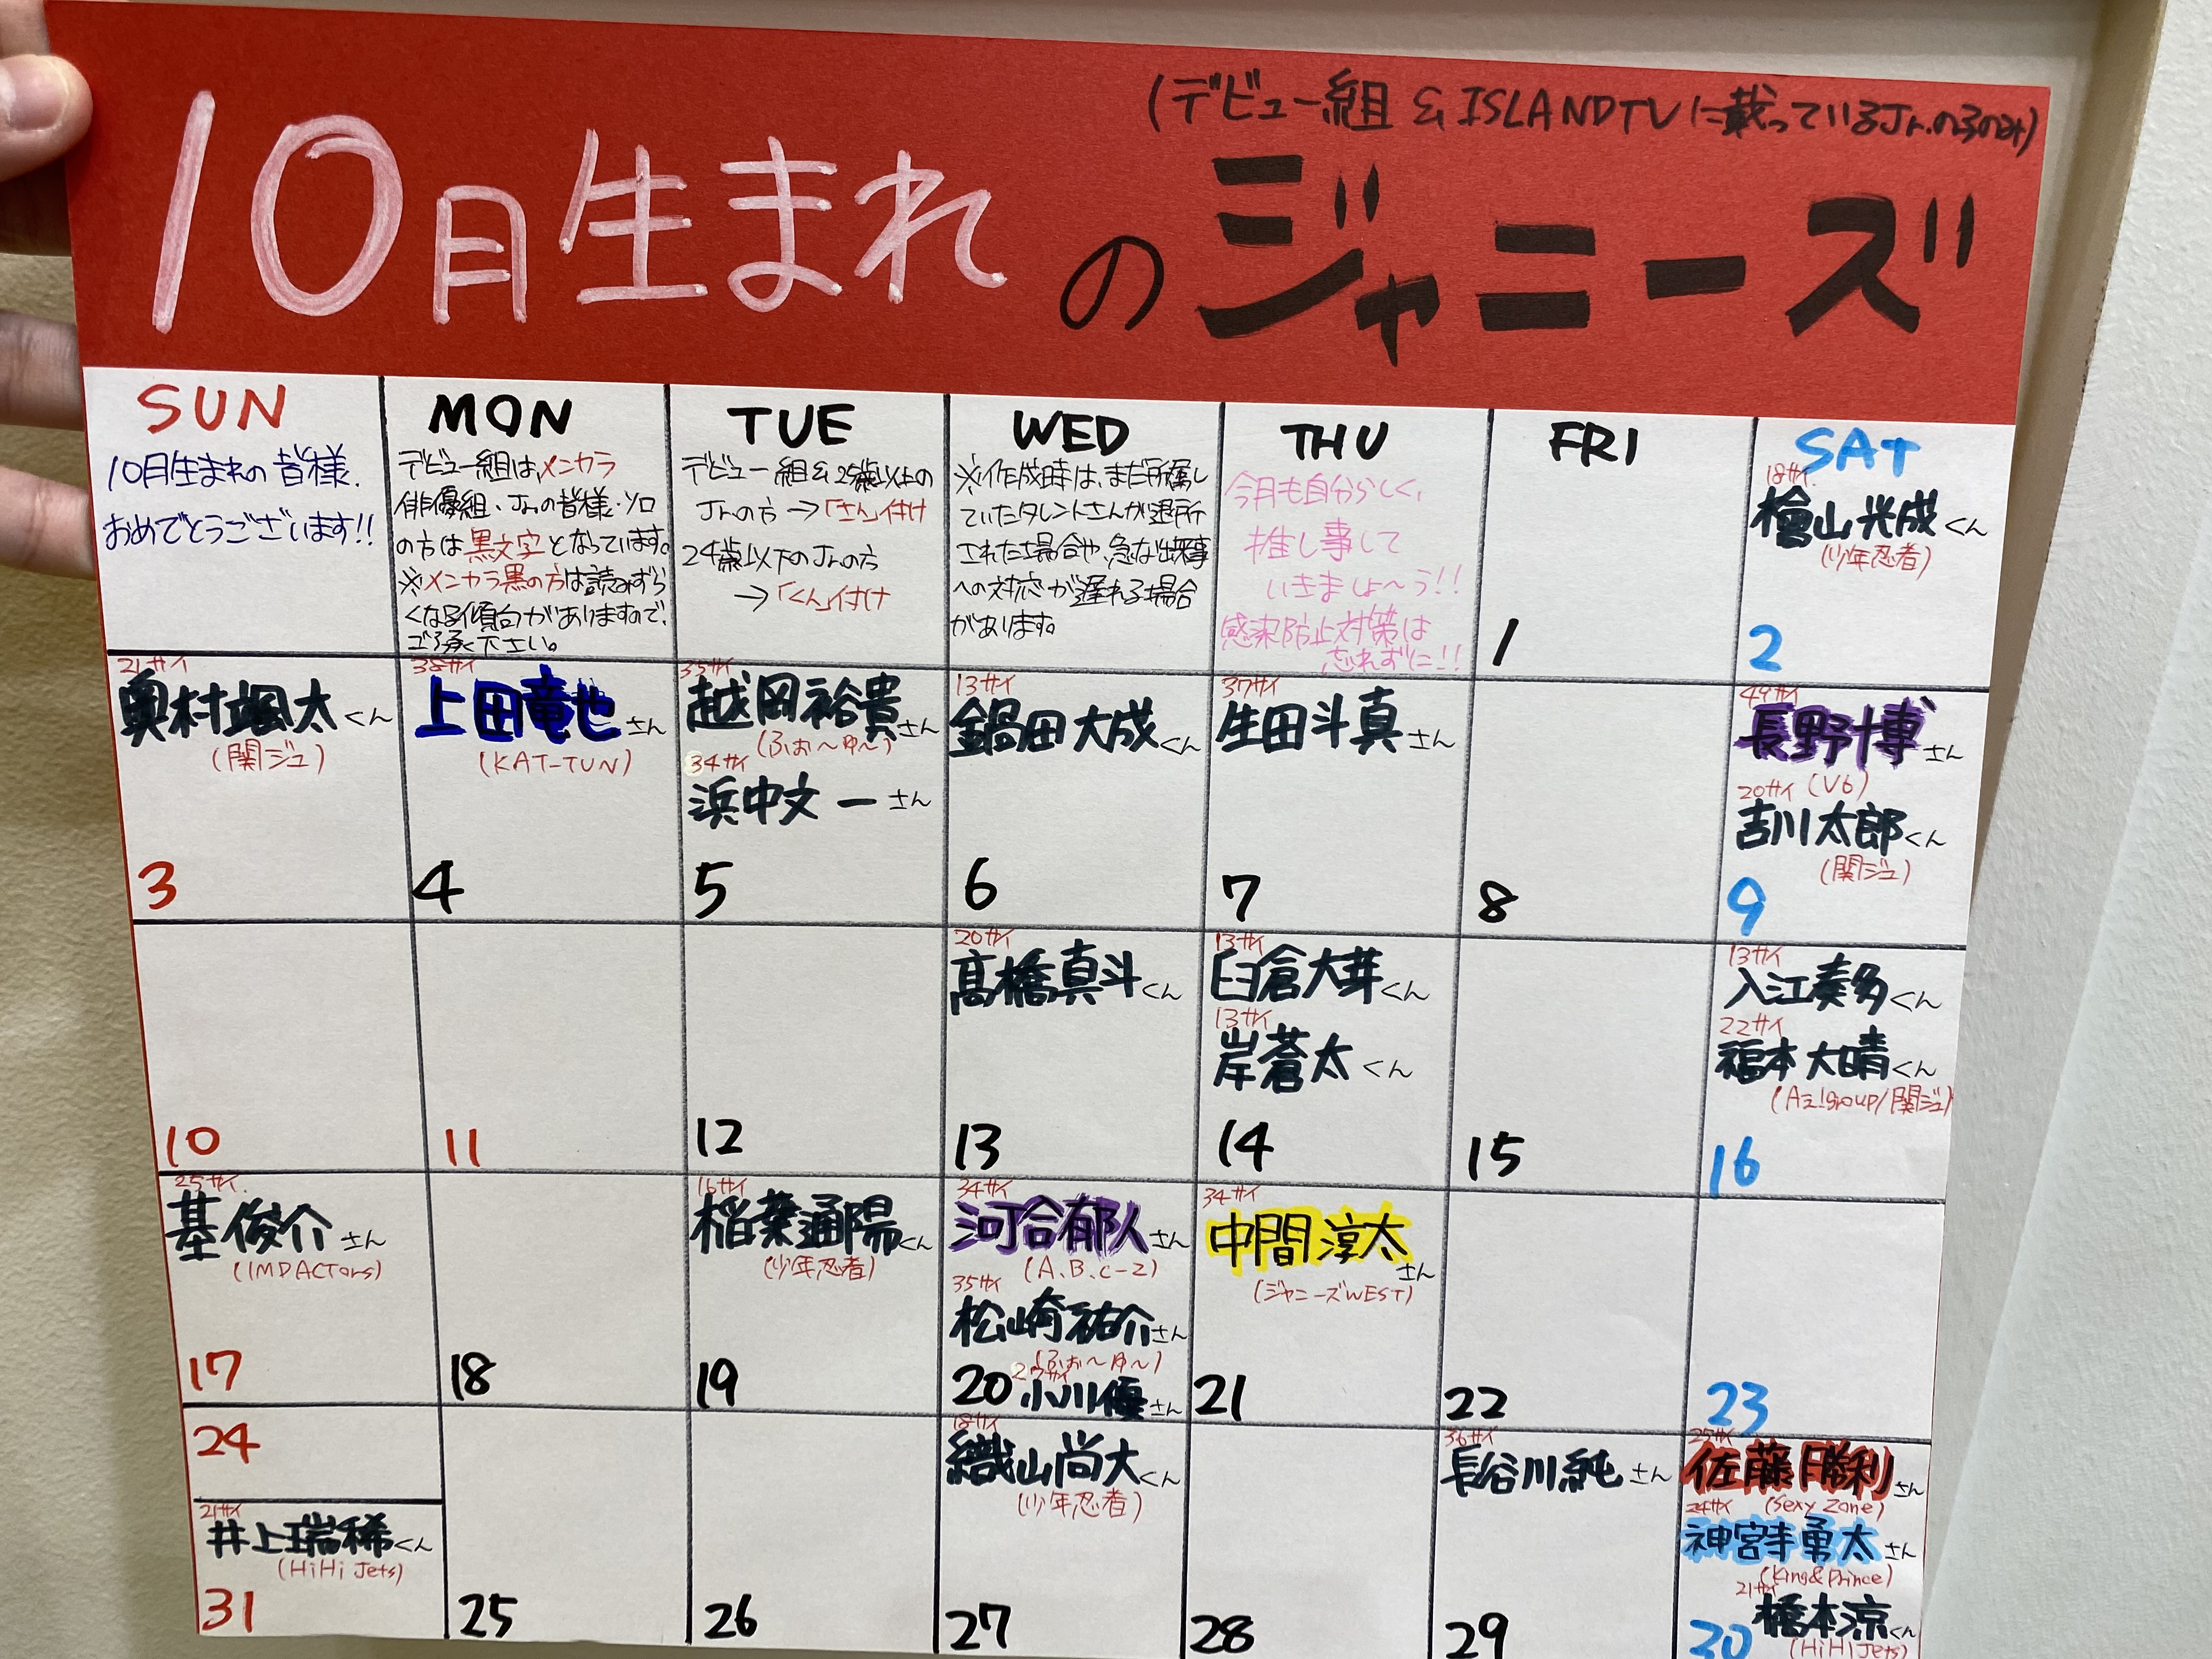 (デビュー組 & ISLANDTVに載っているJr.の子のみ)
10月生まれのジャニーズ
SUN
MON
TUE
WED
THU
FRI
SAT
10月生まれの皆様、
おめでとうございます!!
デビュー組は、メンカラ
俳優組・Jr.の皆様・ソロ
の方は黒文字となっています。
※メンカラ黒の方は読みずら
くなる傾向がありますので、
ご了承下さい。
デビュー組&25歳以上の
Jr.の方→「さん」付け
24歳以下のJr.の方
→「くん」付け
※作成時は、まだ所属し
ていたタレントさんが退所
された場合や、急な出来事
への対応が遅れる場合
があります。
今月も自分らしく、
推し事して
いきましょ〜う!!
感染防止対策は
忘れずに!!
1
18サイ
檜山光成くん
(少年忍者)
2
21サイ
奥村颯太くん
(関ジュ)
3
38サイ
上田竜也さん
(KAT-TUN)
4
35サイ
越岡裕貴さん
(ふぉ〜ゆ〜)
34サイ
浜中文一さん
5
13サイ
鍋田大成くん
6
37サイ
生田斗真さん
7
8
49サイ
長野博さん
(V6)
20サイ
吉川太郎くん
(関ジュ)
9
10
11
12
20サイ
髙橋真斗くん
13
13サイ
臼倉大芽くん
13サイ
岸蒼太くん
14
15
13サイ
入江奏多くん
22サイ
福本大晴くん
(Aぇ!group/関ジュ)
16
25サイ
基俊介さん
(IMPACTors)
17
18
16サイ
稲葉通陽くん
(少年忍者)
19
34サイ
河合郁人さん
(A.B.C-Z)
35サイ
松崎祐介さん
(ふぉ〜ゆ〜)
20
小川優さん
34サイ
中間淳太さん
(ジャニーズWEST)
21
22
23
24
21サイ
井上瑞稀くん
(HiHi Jets)
31
25
26
18サイ
織山尚大くん
(少年忍者)
27
28
36サイ
長谷川純さん
29
25サイ
佐藤勝利さん
(Sexy Zone)
24サイ
神宮寺勇太さん
(King&Prince)
21サイ
橋本涼くん
(HiHi Jets)
30